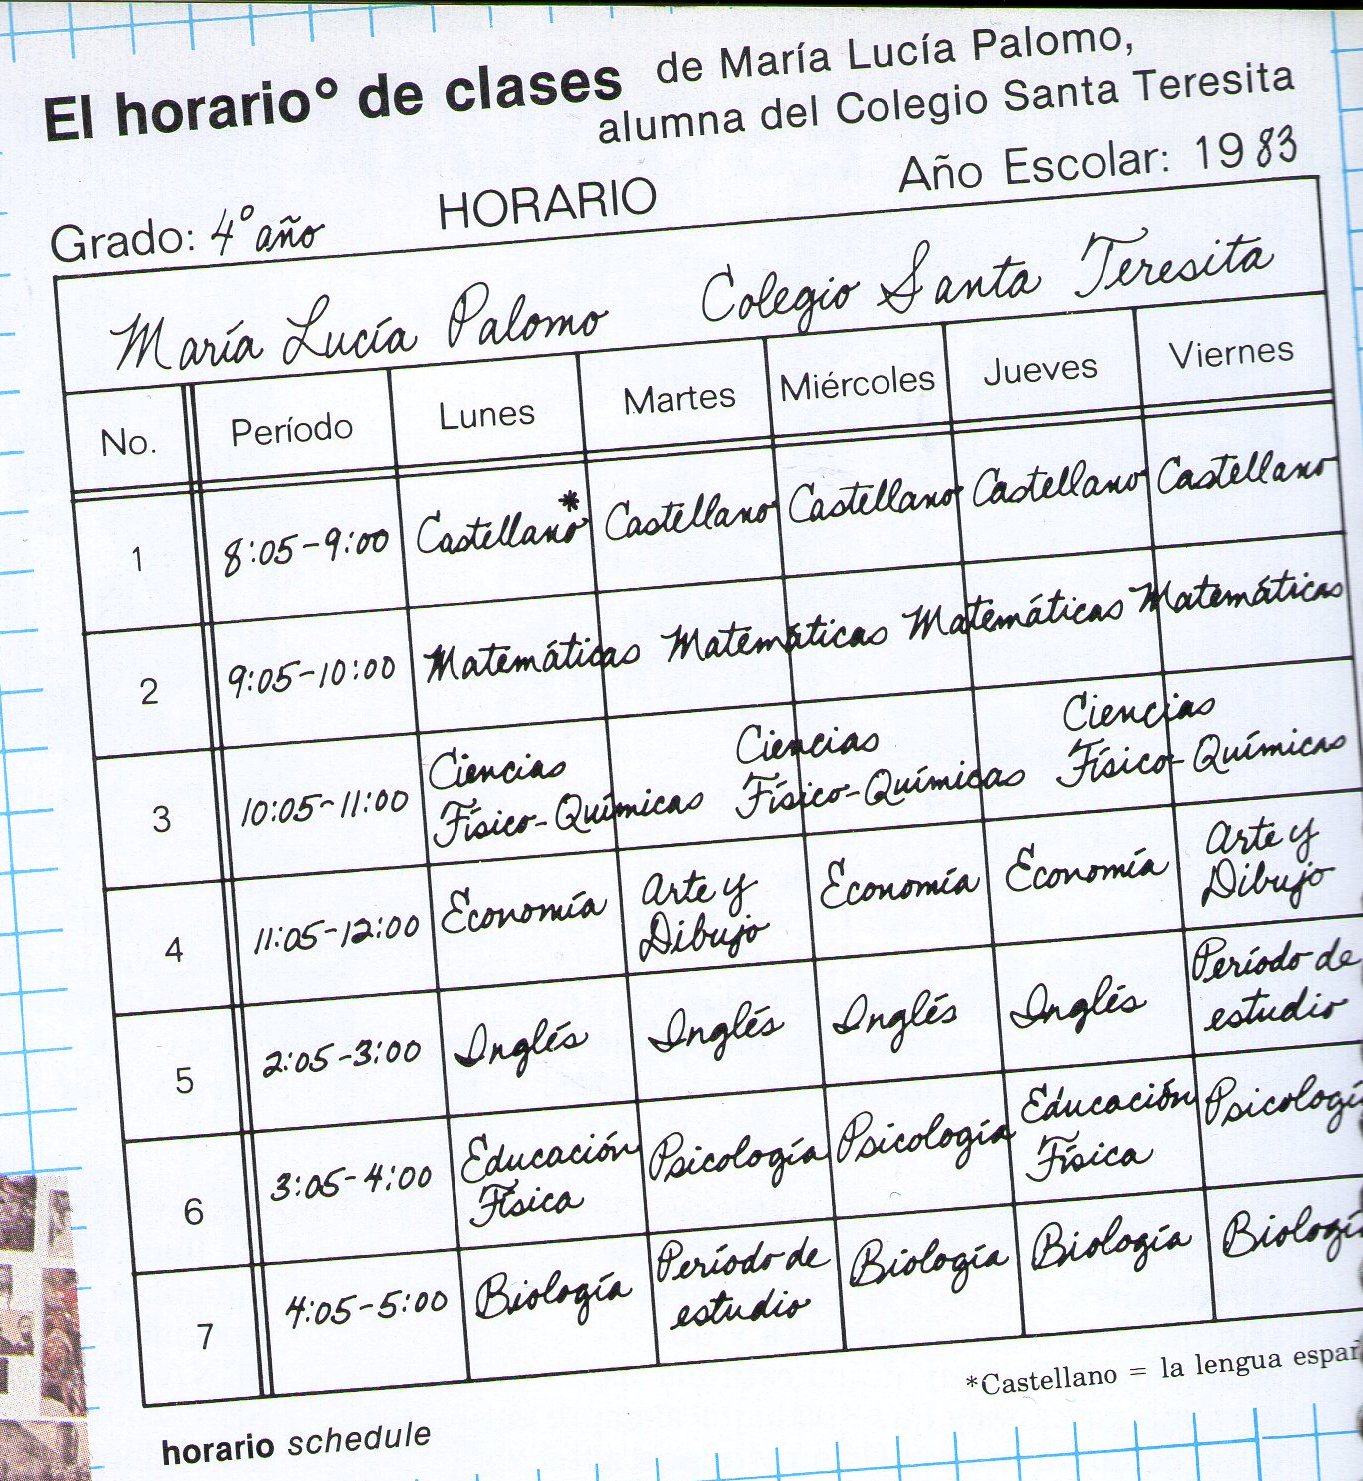 El horario° de clases de María Lucía Palomo,
alumna del Colegio Santa Teresita
Grado: 4° año HORARIO Año Escolar: 1983
María Lucía Palomo Colegio Santa Teresita
No. Período Lunes Martes Miércoles Jueves Viernes
1 8:05-9:00 Castellano* Castellano Castellano Castellano Castellano
2 9:05-10:00 Matemáticas Matemáticas Matemáticas Matemáticas
3 10:05-11:00 Ciencias Ciencias Ciencias
Físico-Químicas Físico-Químicas Físico-Químicas
4 11:05-12:00 Economía Arte y Economía Economía Arte y
Dibujo Dibujo
5 2:05-3:00 Inglés Inglés Inglés Inglés Período de
estudio
6 3:05-4:00 Educación Psicología Psicología Educación Psicologí
Física Física
7 4:05-5:00 Biología Período de Biología Biología Biologí
estudio
*Castellano = la lengua españ
horario schedule